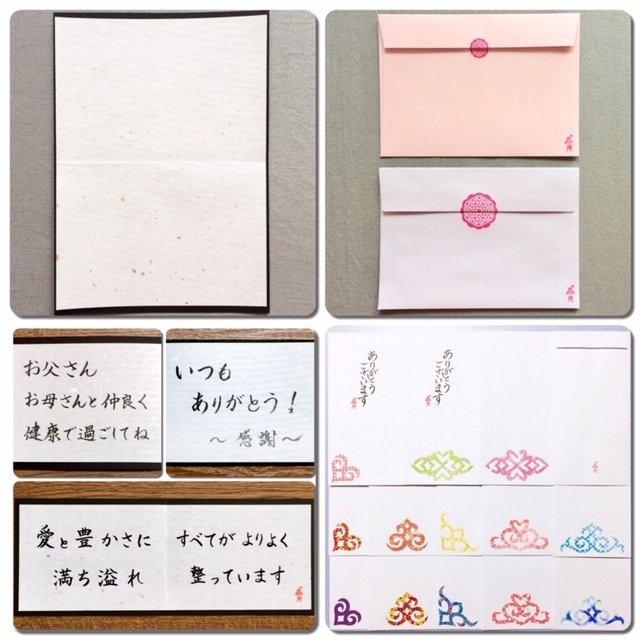 お父さん
お母さんと仲良く
健康で過ごしてね
いつも
ありがとう!
～感謝～
愛と豊かさに
満ち溢れ
すべてが よりよく
整っています
ありがとう
ございます
ありがとう
ございます